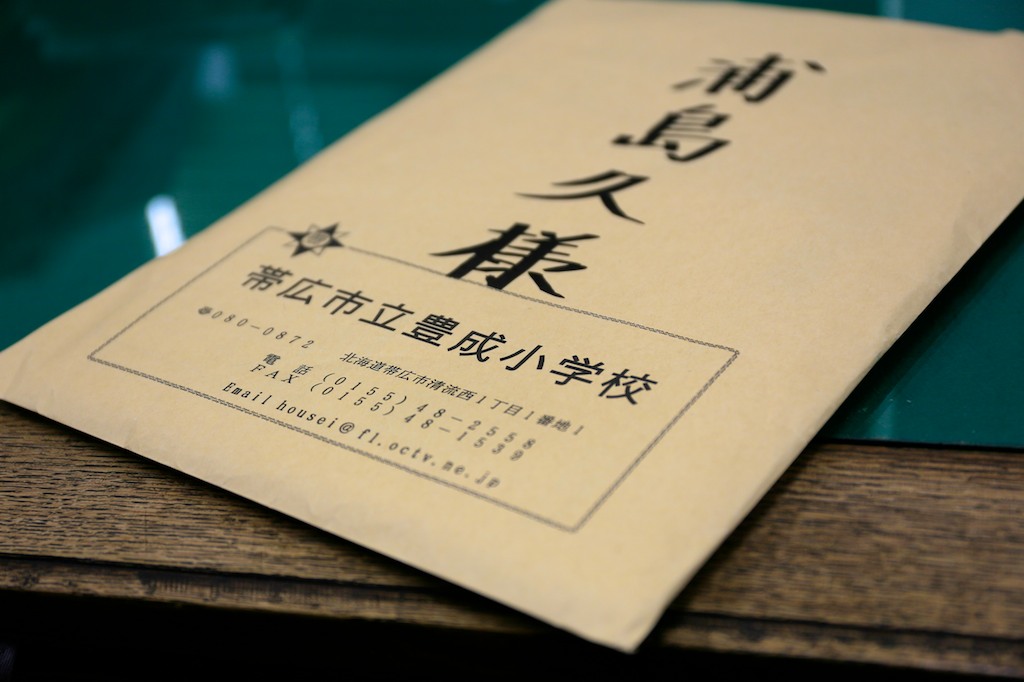 浦島久様
帯広市立豊成小学校
080-0872
北海道帯広市清流西1丁目1番地1
電話 (0155) 48-2558
FAX (0155) 48-1539
Email housei@f1.octv.ne.jp